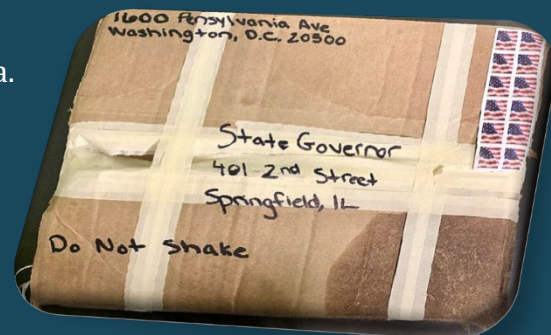 1600 Pensylvania Ave
Washington, D.C. 20500
a.
State Governor
401 2nd Street
Springfield, IL
Do Not Shake